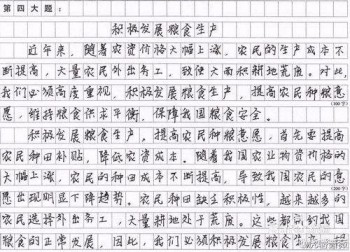 第四大题：
积极发展粮食生产
近年来，随着农资价格大幅上涨，农民的生产成本不
断提高，大量农民外出务工，致使大面积耕地荒废。对此，
我们必须高度重视，积极发展粮食生产，提高农民种粮意
愿，维持粮食供求平衡，保障我国粮食安全。
积极发展粮食生产，提高农民种粮意愿，首先要提高
农民种田补贴，降低农资成本。随着我国农业物资价格的
大幅上涨，农民的种田成本不断提高，导致我国农民的意
愿出现明显下降趋势。农民种田缺乏积极性，越来越多的
农民选择外出务工，大量耕地处于荒废。这些都影响到我国
粮食的正常发展，因此，我们必须积极发展粮食生产，提